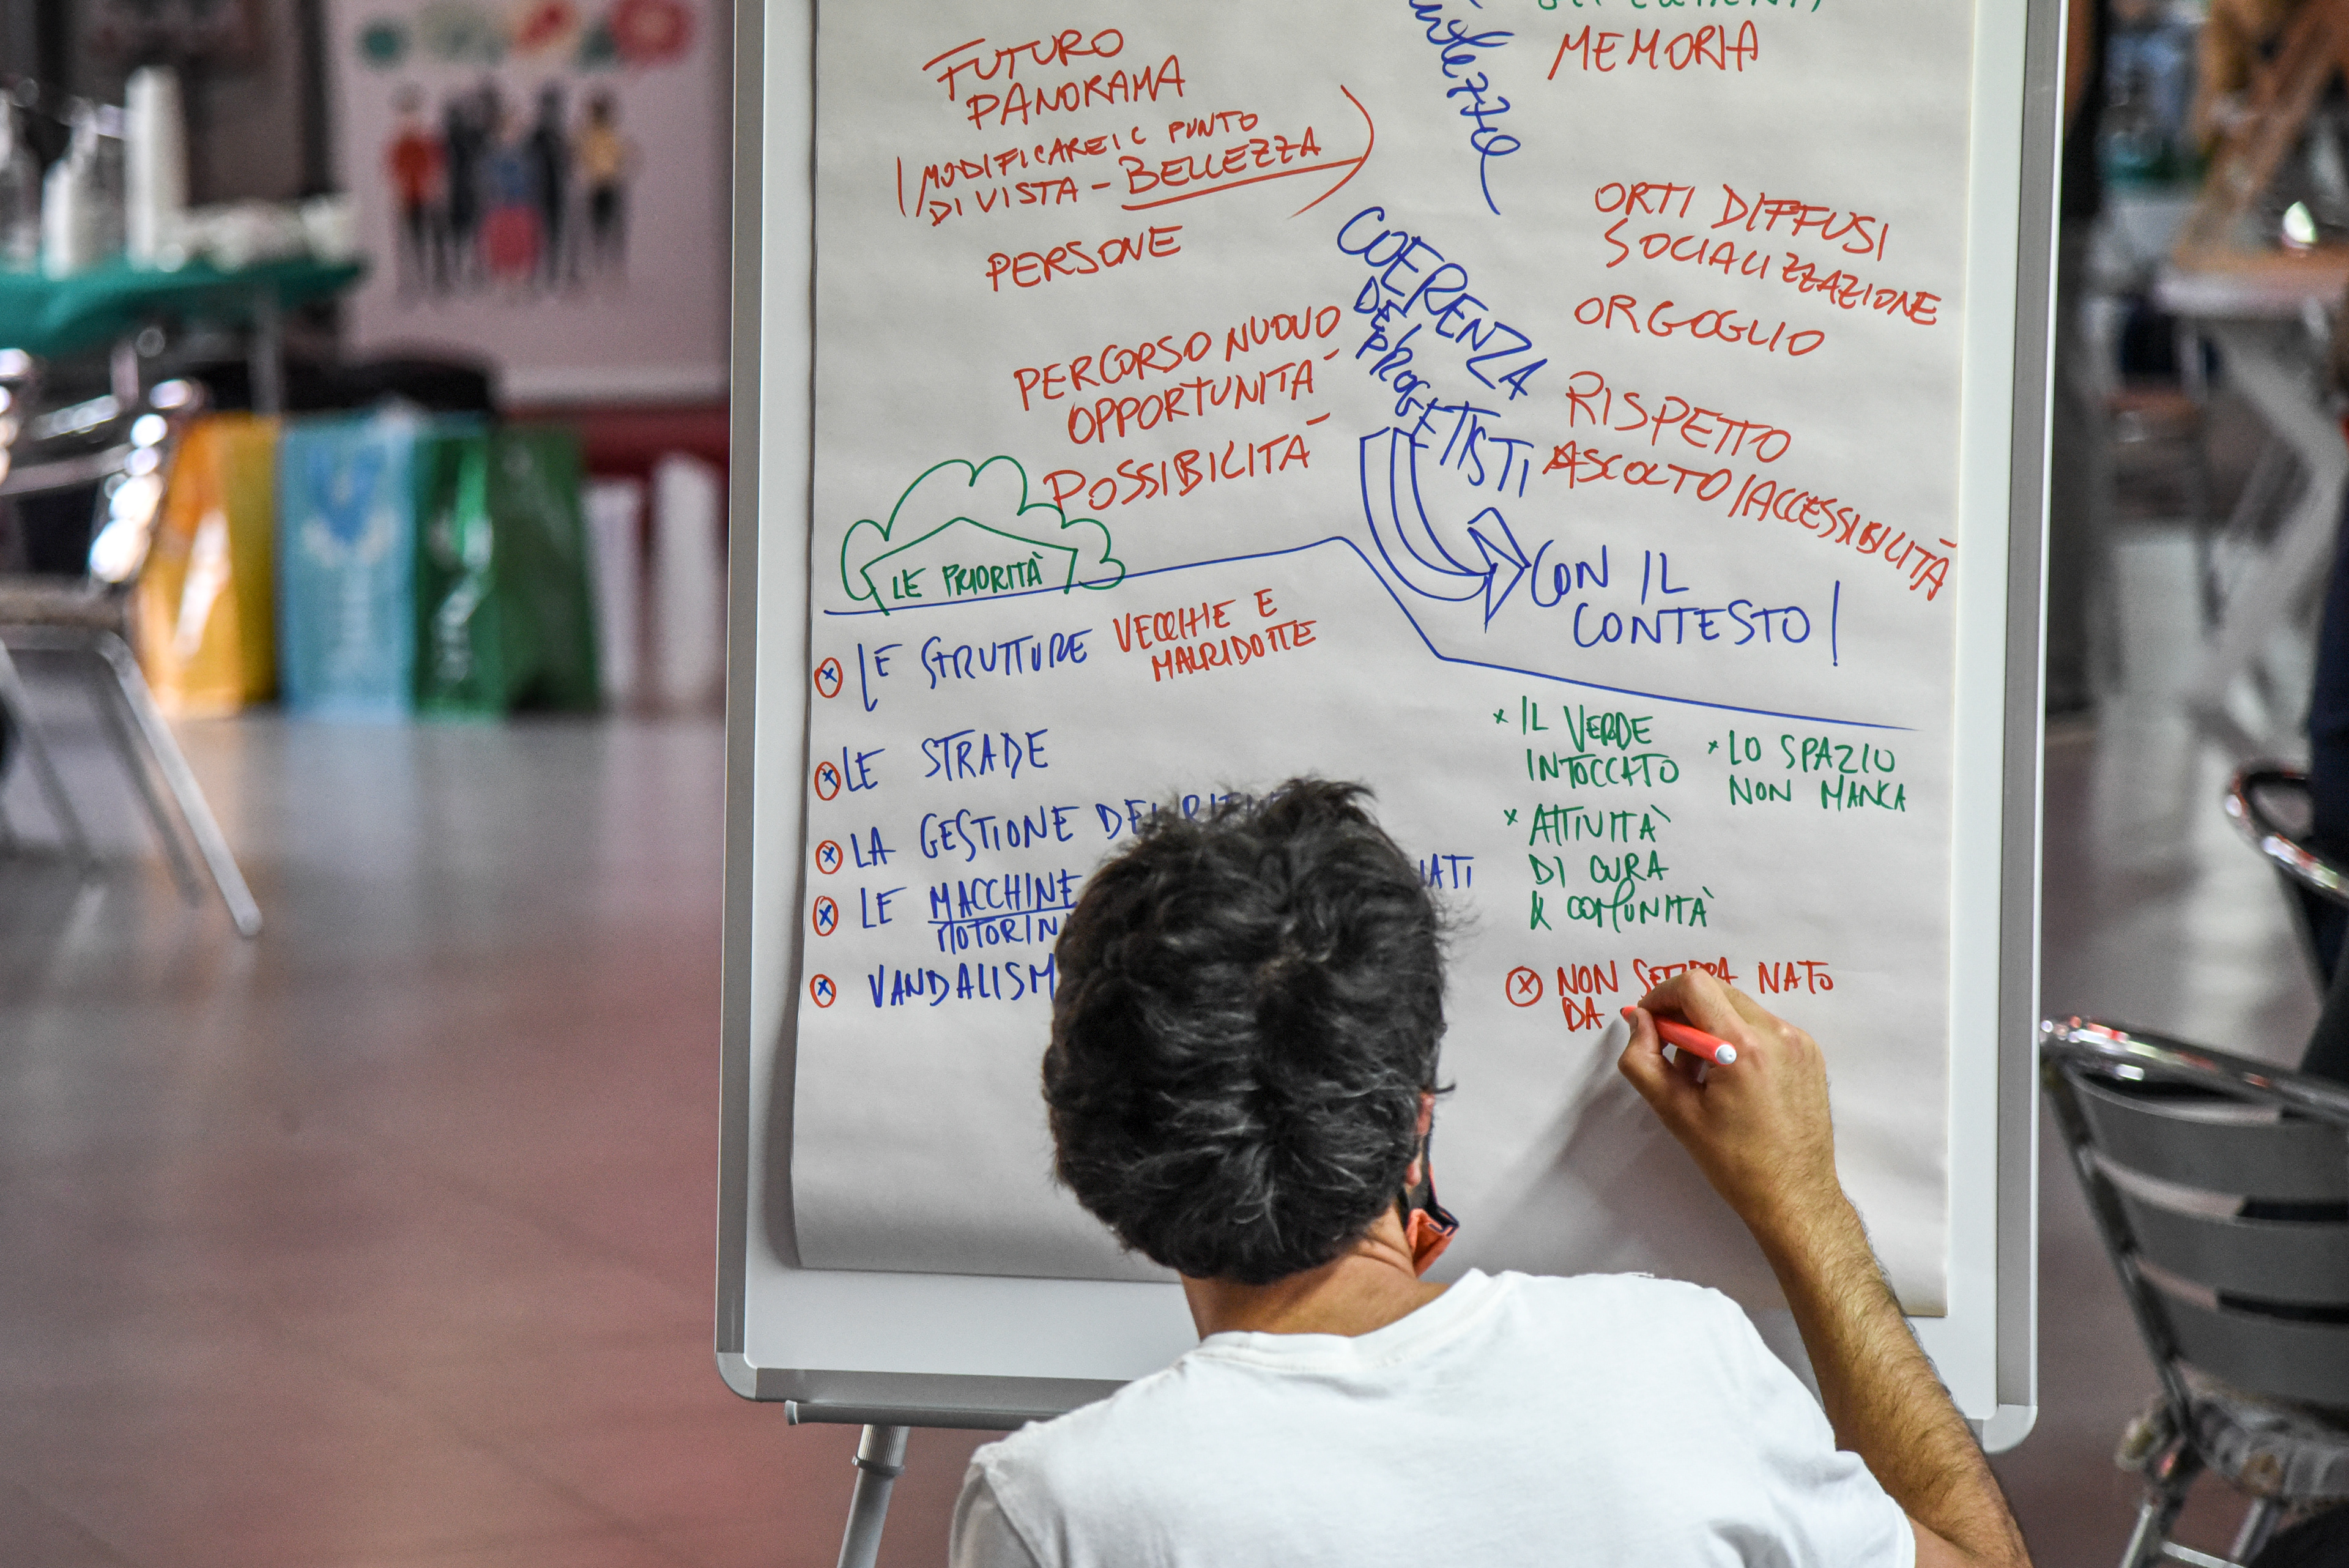 FUTURO
PANORAMA
(MODIFICARE IL PUNTO
DI VISTA - BELLEZZA)
PERSONE
PERCORSO NUOVO
OPPORTUNITA'
POSSIBILITA'
MEMORIA
ORTI DIFFUSI
SOCIALIZZAZIONE
ORGOGLIO
RISPETTO
ASCOLTO/ACCESSIBILITÀ
COERENZA
DEI
PROGETTISTI
CON IL
CONTESTO!
LE PRIORITÀ
LE STRUTTURE VECCHIE E
MALRIDOTTE
LE STRADE
LA GESTIONE DEI
LE MACCHINE
VANDALISM
x IL VERDE
INTOCCATO
x LO SPAZIO
NON MANCA
x ATTIVITÀ
DI CURA
& COMUNITÀ
NON NATO
DA